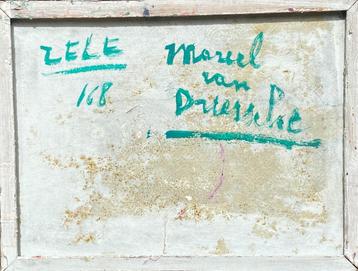 ZELE
168
Marcel
van
Driessche